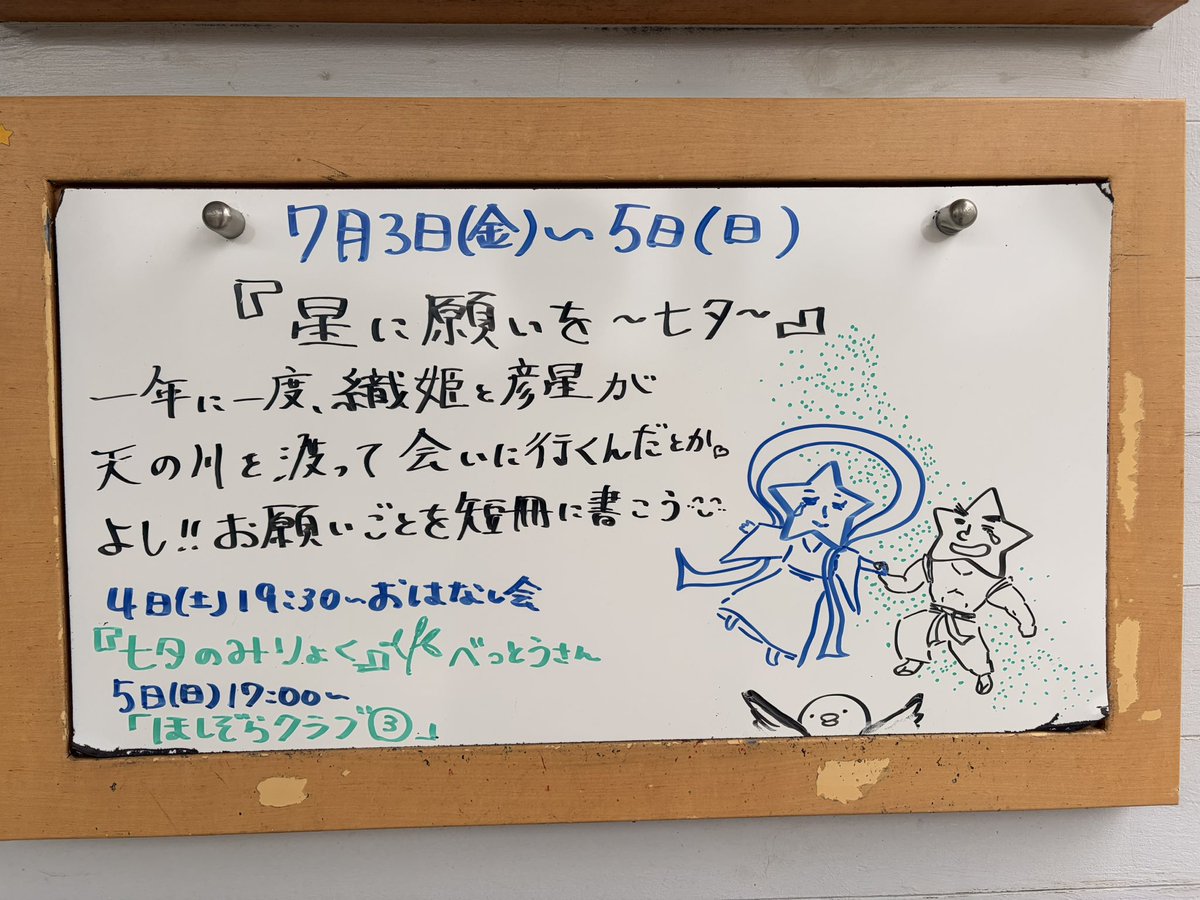 7月3日(金)～5日(日)
『星に願いを～七夕～』
一年に一度、織姫と彦星が
天の川を渡って会いに行くんだとか。
よし!!お願いごとを短冊に書こう
4日(土)19:30～おはなし会
『七夕のみりょく』べっとうさん
5日(日)17:00～
「ほしぞらクラブ③」